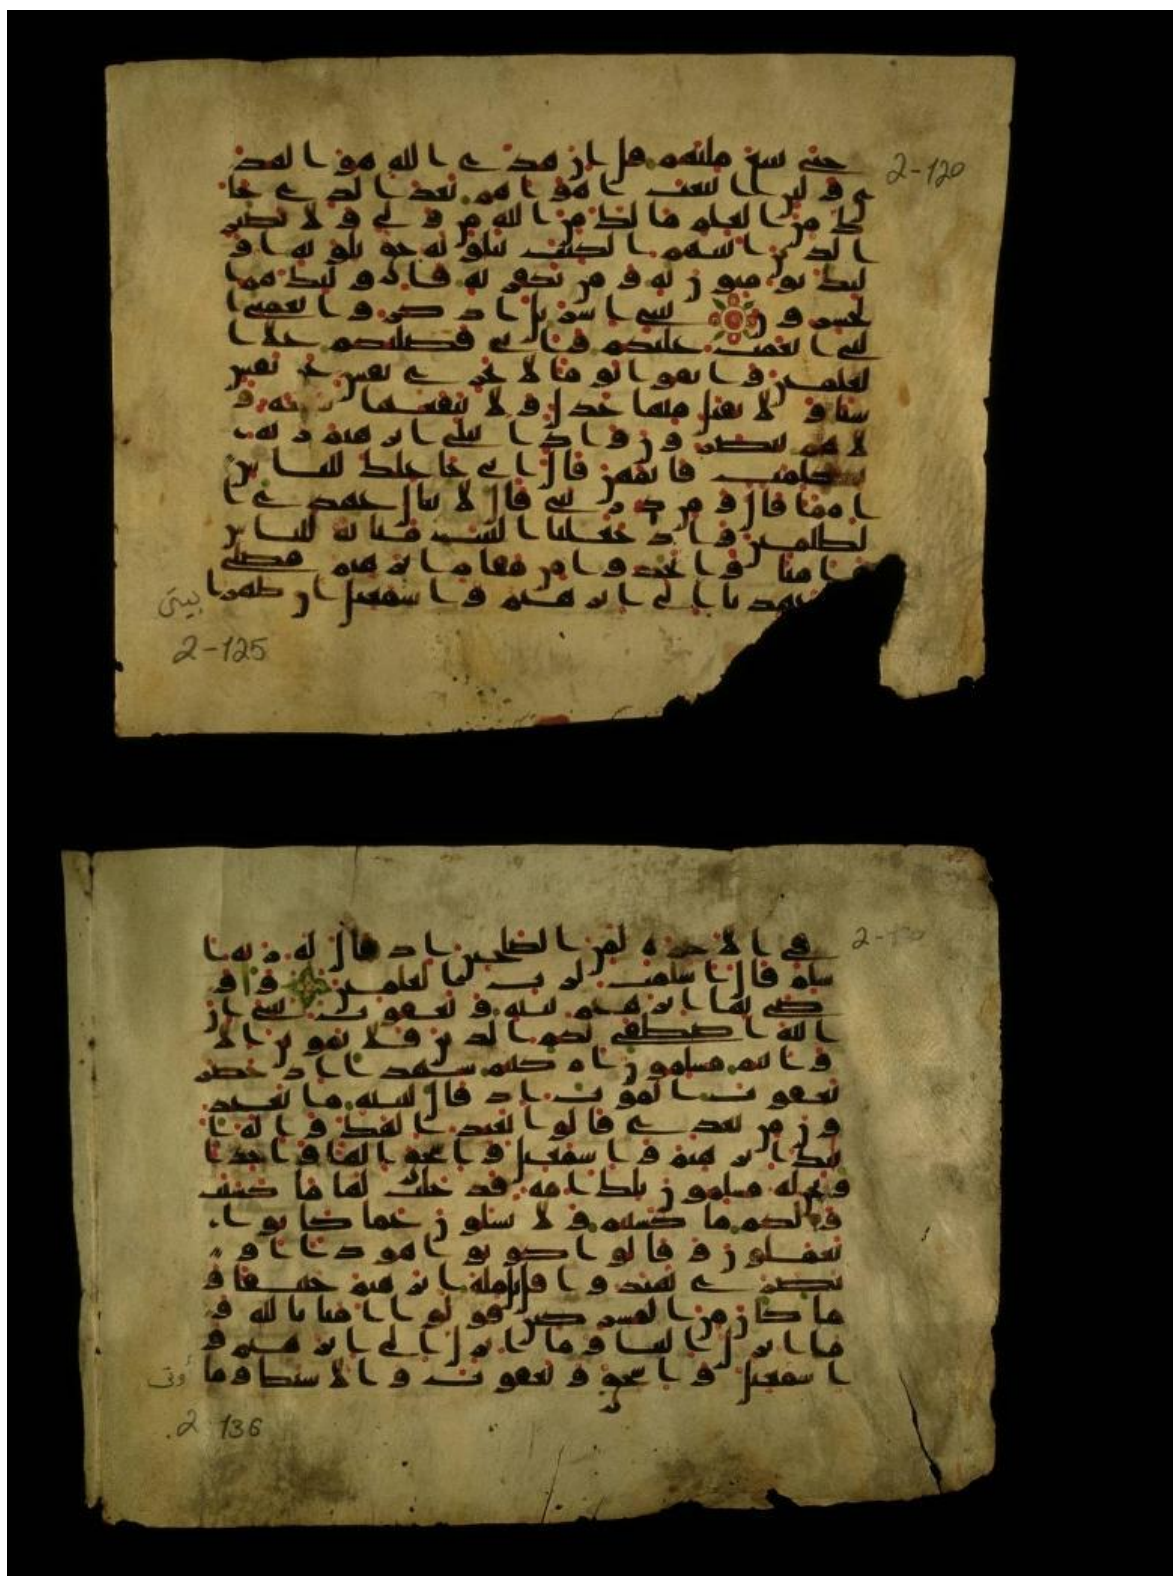 2-120
حتى تتبع ملتهم قل ان هدى الله هو الهد
ى ولئن اتبعت اهواهم بعد الذى جا
ك من العلم ما لك من الله من ولى ولا نصير
الذين اتينهم الكتب يتلونه حق تلوته او
ليك يومنون به ومن يكفر به فاوليك هم ا
لخسرون يبنى اسريل اذكروا نعمتى ا
لتى انعمت عليكم وانى فضلتكم على ا
لعلمين واتقوا يوما لا تجزى نفس عن نفس
شيا ولا يقبل منها عدل ولا تنفعها شفعة و
لا هم ينصرون واذ ابتلى ابرهيم ربه
بكلمت فاتمهن قال انى جاعلك للناس
اماما قال ومن ذريتى قال لا ينال عهدى ا
لظلمين واذ جعلنا البيت مثابة للناس
وامنا واتخذوا من مقام ابرهيم مصلى
وعهدنا الى ابرهيم واسمعيل ان طهرا
بيتى
2-125
فى الاخرة لمن الصلحين اذ قال له ربه ا
سلم قال اسلمت لرب العلمين وو
صى بها ابرهيم بنيه ويعقوب يبنى ان
الله اصطفى لكم الدين فلا تموتن الا
وانتم مسلمون ام كنتم شهدا اذ حضر
يعقوب الموت اذ قال لبنيه ما تعبد
ون من بعدى قالوا نعبد الهك واله ا
بايك ابرهيم واسمعيل واسحق الها وحدا
ونحن له مسلمون تلك امة قد خلت لها ما كسبت
ولكم ما كسبتم ولا تسلون عما كانوا
يعملون وقالوا كونوا هودا او
نصرى تهتدوا قل بل ملة ابرهيم حنيفا و
ما كان من المشركين قولوا امنا بالله و
ما انزل الينا وما انزل الى ابرهيم و
اسمعيل واسحق ويعقوب والاسباط وما
أوتى
2-136